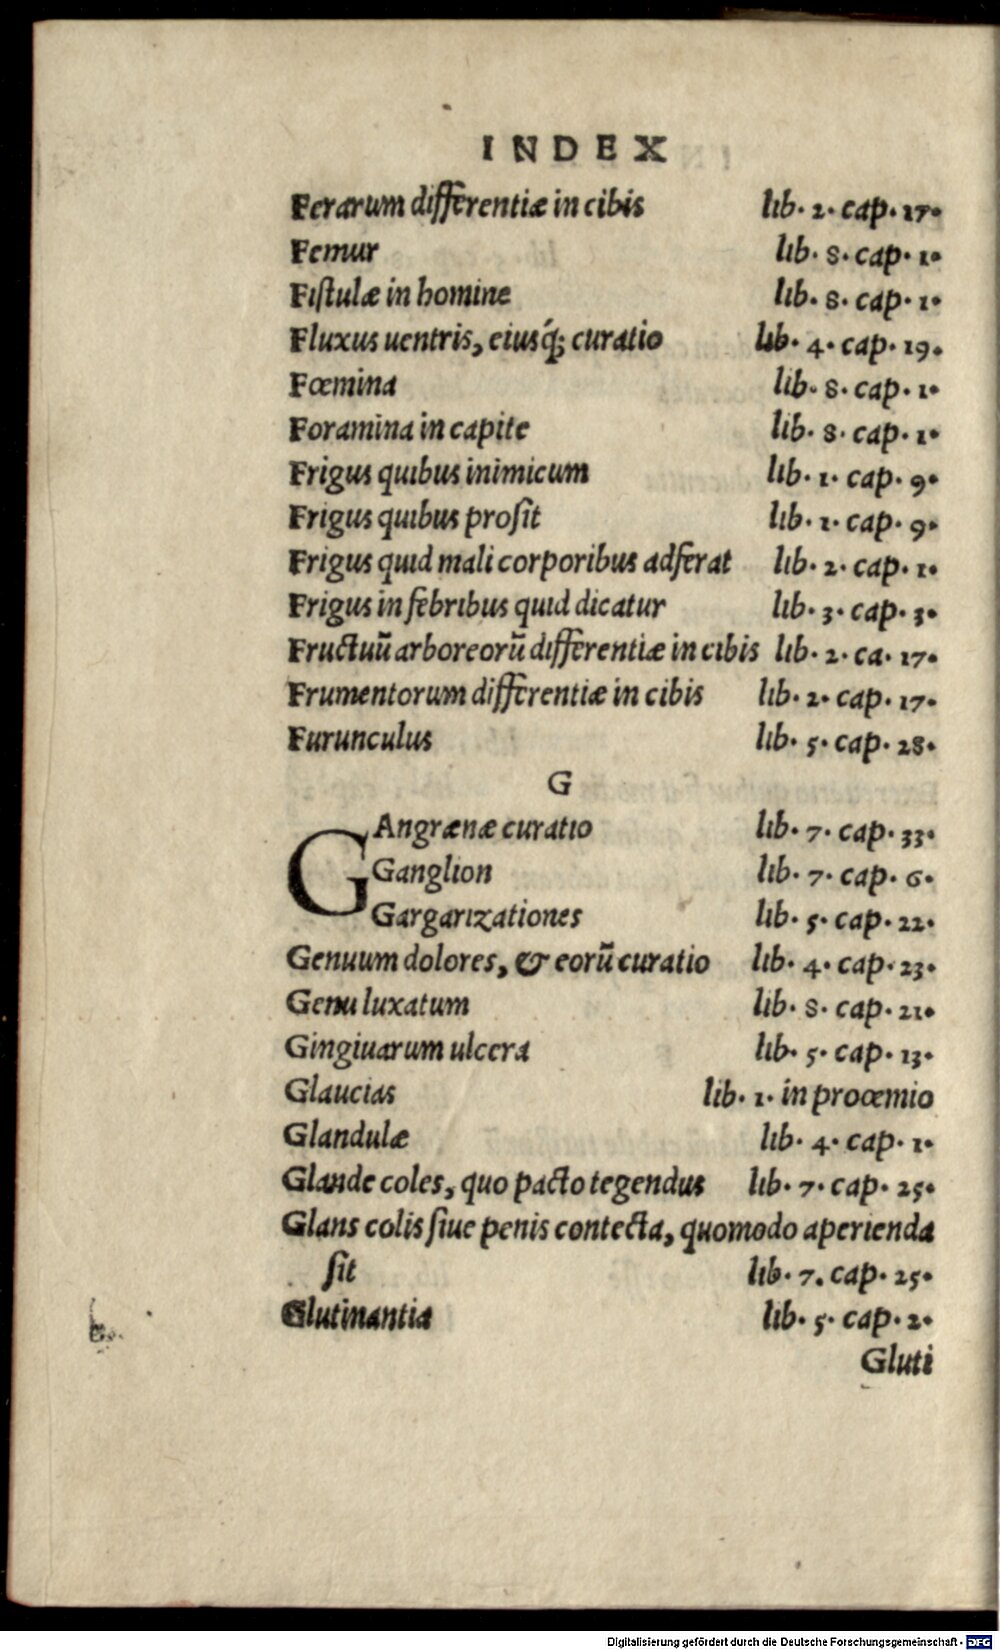 INDEX
Ferarum differentiæ in cibis lib. 2. cap. 17.
Femur lib. 8. cap. 1.
Fistulæ in homine lib. 8. cap. 1.
Fluxus uentris, eiusq́; curatio lib. 4. cap. 19.
Fœmina lib. 8. cap. 1.
Foramina in capite lib. 8. cap. 1.
Frigus quibus inimicum lib. 1. cap. 9.
Frigus quibus prosit lib. 1. cap. 9.
Frigus quid mali corporibus adferat lib. 2. cap. 1.
Frigus in febribus quid dicatur lib. 3. cap. 3.
Fructuū arboreorū differentiæ in cibis lib. 2. ca. 17.
Frumentorum differentiæ in cibis lib. 2. cap. 17.
Furunculus lib. 5. cap. 28.
G
GAngrænæ curatio lib. 7. cap. 33.
Ganglion lib. 7. cap. 6.
Gargarizationes lib. 5. cap. 22.
Genuum dolores, & eorū curatio lib. 4. cap. 23.
Genu luxatum lib. 8. cap. 21.
Gingiuarum ulcera lib. 5. cap. 13.
Glaucias lib. 1. in proœmio
Glandulæ lib. 4. cap. 1.
Glande coles, quo pacto tegendus lib. 7. cap. 25.
Glans colis siue penis contecta, quomodo aperienda
sit lib. 7. cap. 25.
Glutinantia lib. 5. cap. 2.
Gluti
Digitalisierung gefördert durch die Deutsche Forschungsgemeinschaft - DFG